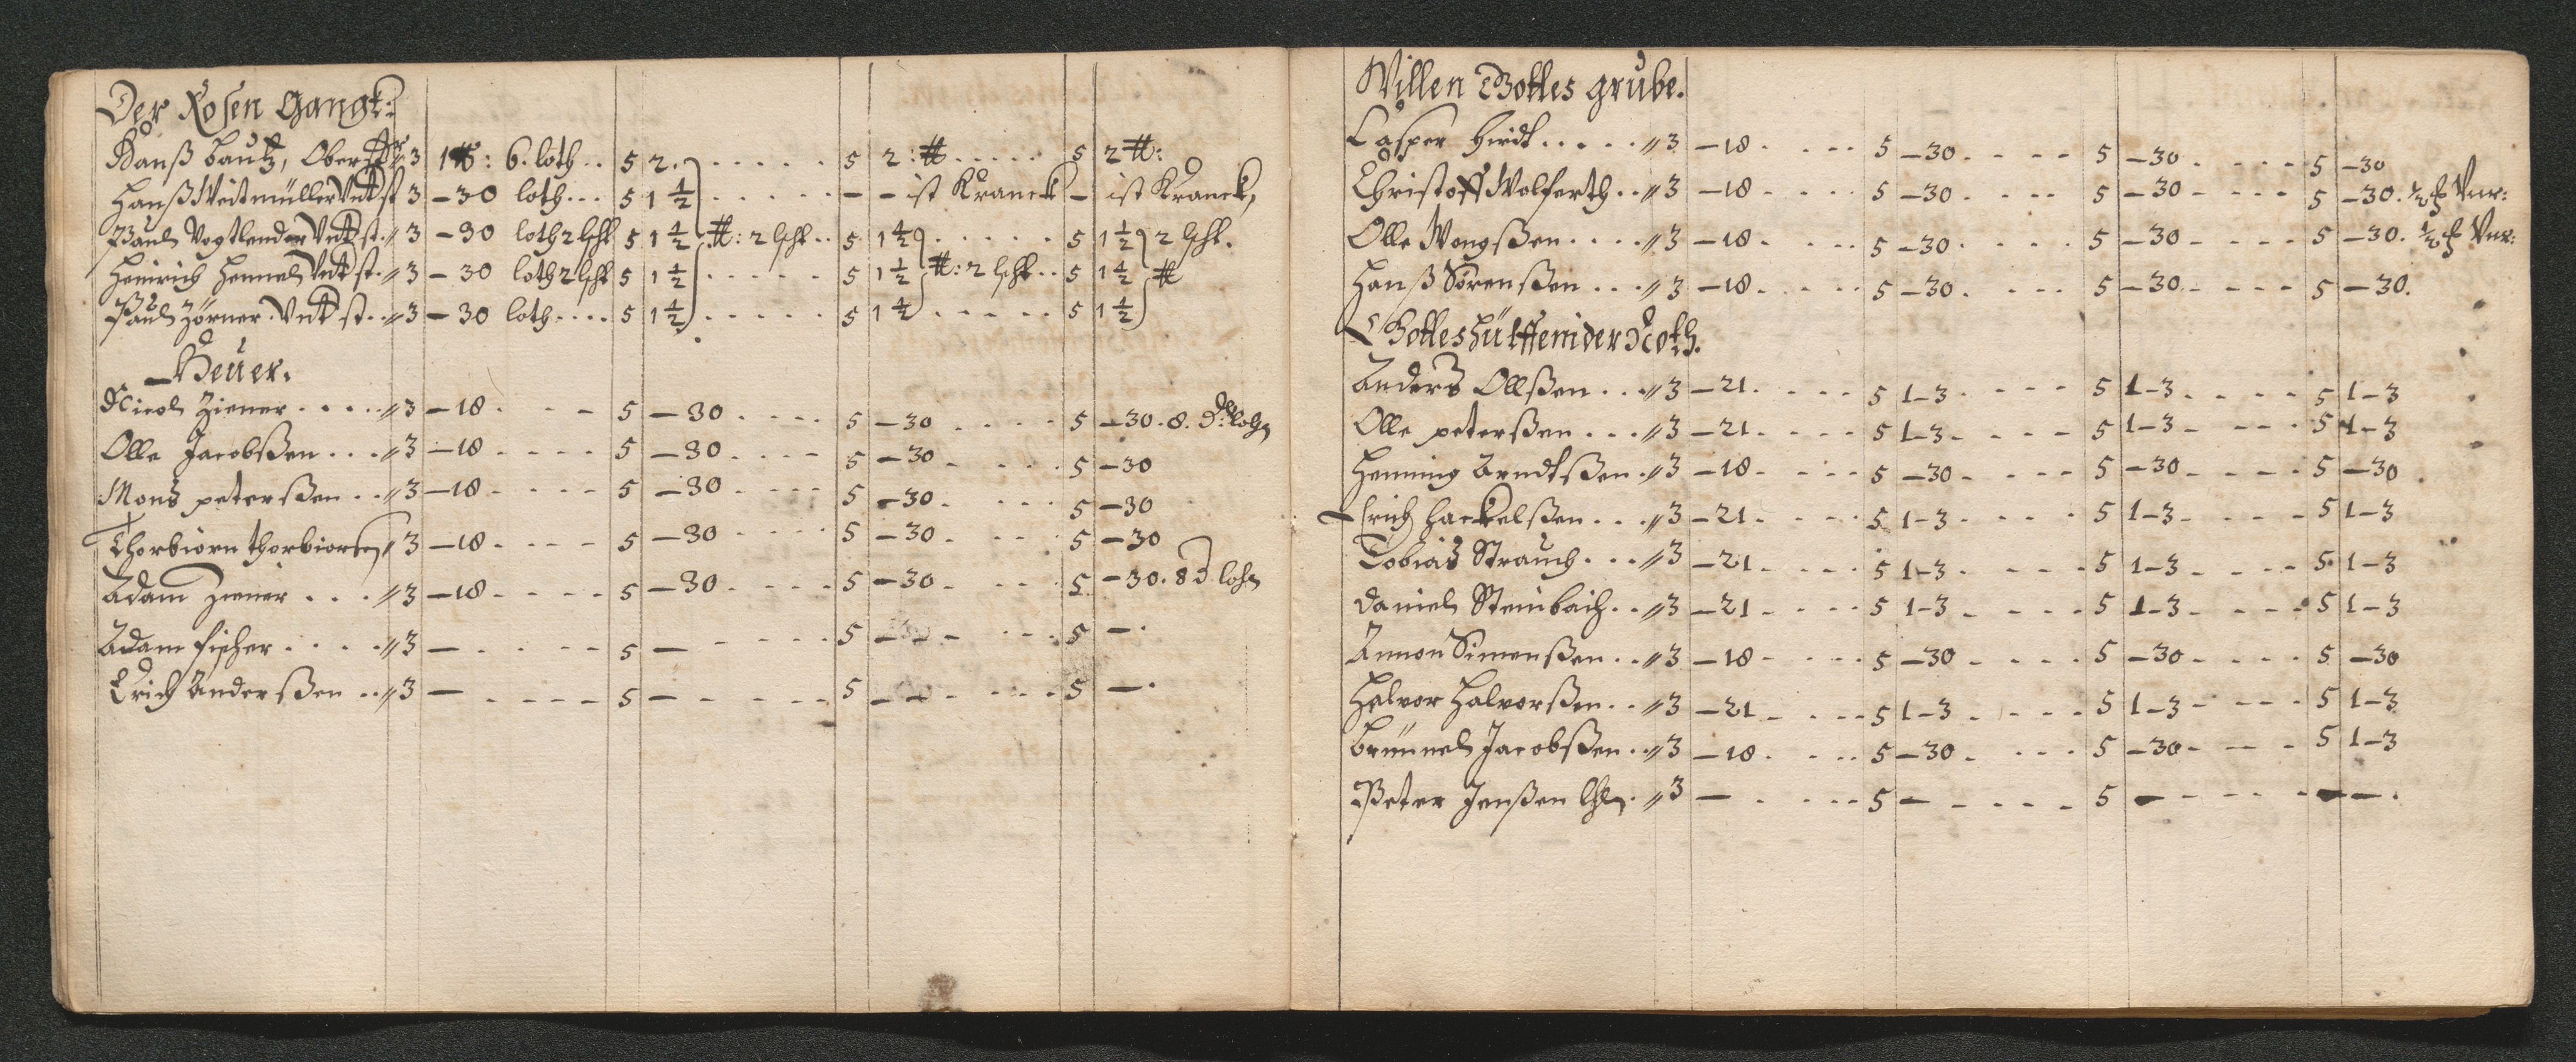 Der Rosen Gangk:
Hanß Bautz, Oberst: 3 1 ℔: 6. loth .. 5 2. ..... 5 2: ℔ ..... 5 2 ℔:
Hanß Weitmüller Vnt st 3 – 30 loth... 5 1 1/2 ..... – – ist Kranck – ist Kranck,
Paul Vogtlender Vnt st. 3 – 30 loth 2 lßht 5 1 1/2 ℔: 2 lßht.. 5 1 1/2 ..... 5 1 1/2 2 lßht.
Heinrich Hennel Vnt st. 3 – 30 loth 2 lßht 5 1 1/2 ..... 5 1 1/2 ℔: 2 lßht.. 5 1 1/2 ℔
Paul Zörner. Vnt st.. 3 – 30 loth.... 5 1 1/2 ..... 5 1 1/2 ..... 5 1 1/2
Heüer.
Nicol Ziener ..... 3 – 18 .... 5 – 30 .... 5 – 30 .... 5 – 30. 8.
Olle Jacobßen ... 3 – 18 .... 5 – 30 .... 5 – 30 .... 5 – 30
Monß peterßen .. 3 – 18 .... 5 – 30 .... 5 – 30 .... 5 – 30
Thorbiörn thorbiorßen 3 – 18 .... 5 – 30 .... 5 – 30 .... 5 – 30
Adam Ziener ... 3 – 18 .... 5 – 30 .... 5 – 30 .... 5 – 30. 8
Adam fischer .... 3 – .... 5 – .... 5 – – .... 5 – .
Erich Anderßen .. 3 – .... 5 – .... 5 – – .... 5 – .
Willen Gottes grube.
Casper Hirdt ..... 3 – 18 .... 5 – 30 .... 5 – 30 .... 5 – 30
Christoff Wolferth .. 3 – 18 .... 5 – 30 .... 5 – 30 .... 5 – 30. 1/2
Olle Mongßen .... 3 – 18 .... 5 – 30 .... 5 – 30 .... 5 – 30. 1/2
Hanß Sörenßen ... 3 – 18 .... 5 – 30 .... 5 – 30 .... 5 – 30.
Gottes hülffe in der Noth.
Anderß Ollßen ... 3 – 21 .... 5 1 – 3 .... 5 1 – 3 .... 5 1 – 3
Olle peterßen ... 3 – 21 .... 5 1 – 3 .... 5 1 – 3 .... 5 1 – 3
Henning Arndtßen . 3 – 18 .... 5 – 30 .... 5 – 30 .... 5 – 30
Erich Hackelßen ... 3 – 21 .... 5 1 – 3 .... 5 1 – 3 .... 5 1 – 3
Tobiaß Strauch ... 3 – 21 .... 5 1 – 3 .... 5 1 – 3 .... 5 1 – 3
Daniel Steinbach .. 3 – 21 .... 5 1 – 3 .... 5 1 – 3 .... 5 1 – 3
Ammon Simenßen .. 3 – 18 .... 5 – 30 .... 5 – 30 .... 5 – 30
Halvor Halvorßen .. 3 – 21 .... 5 1 – 3 .... 5 1 – 3 .... 5 1 – 3
Brünnel Jacobßen .. 3 – 18 .... 5 – 30 .... 5 – 30 .... 5 1 – 3
Peter Jenßen 3 – .... 5 – .... 5 – .... – – .